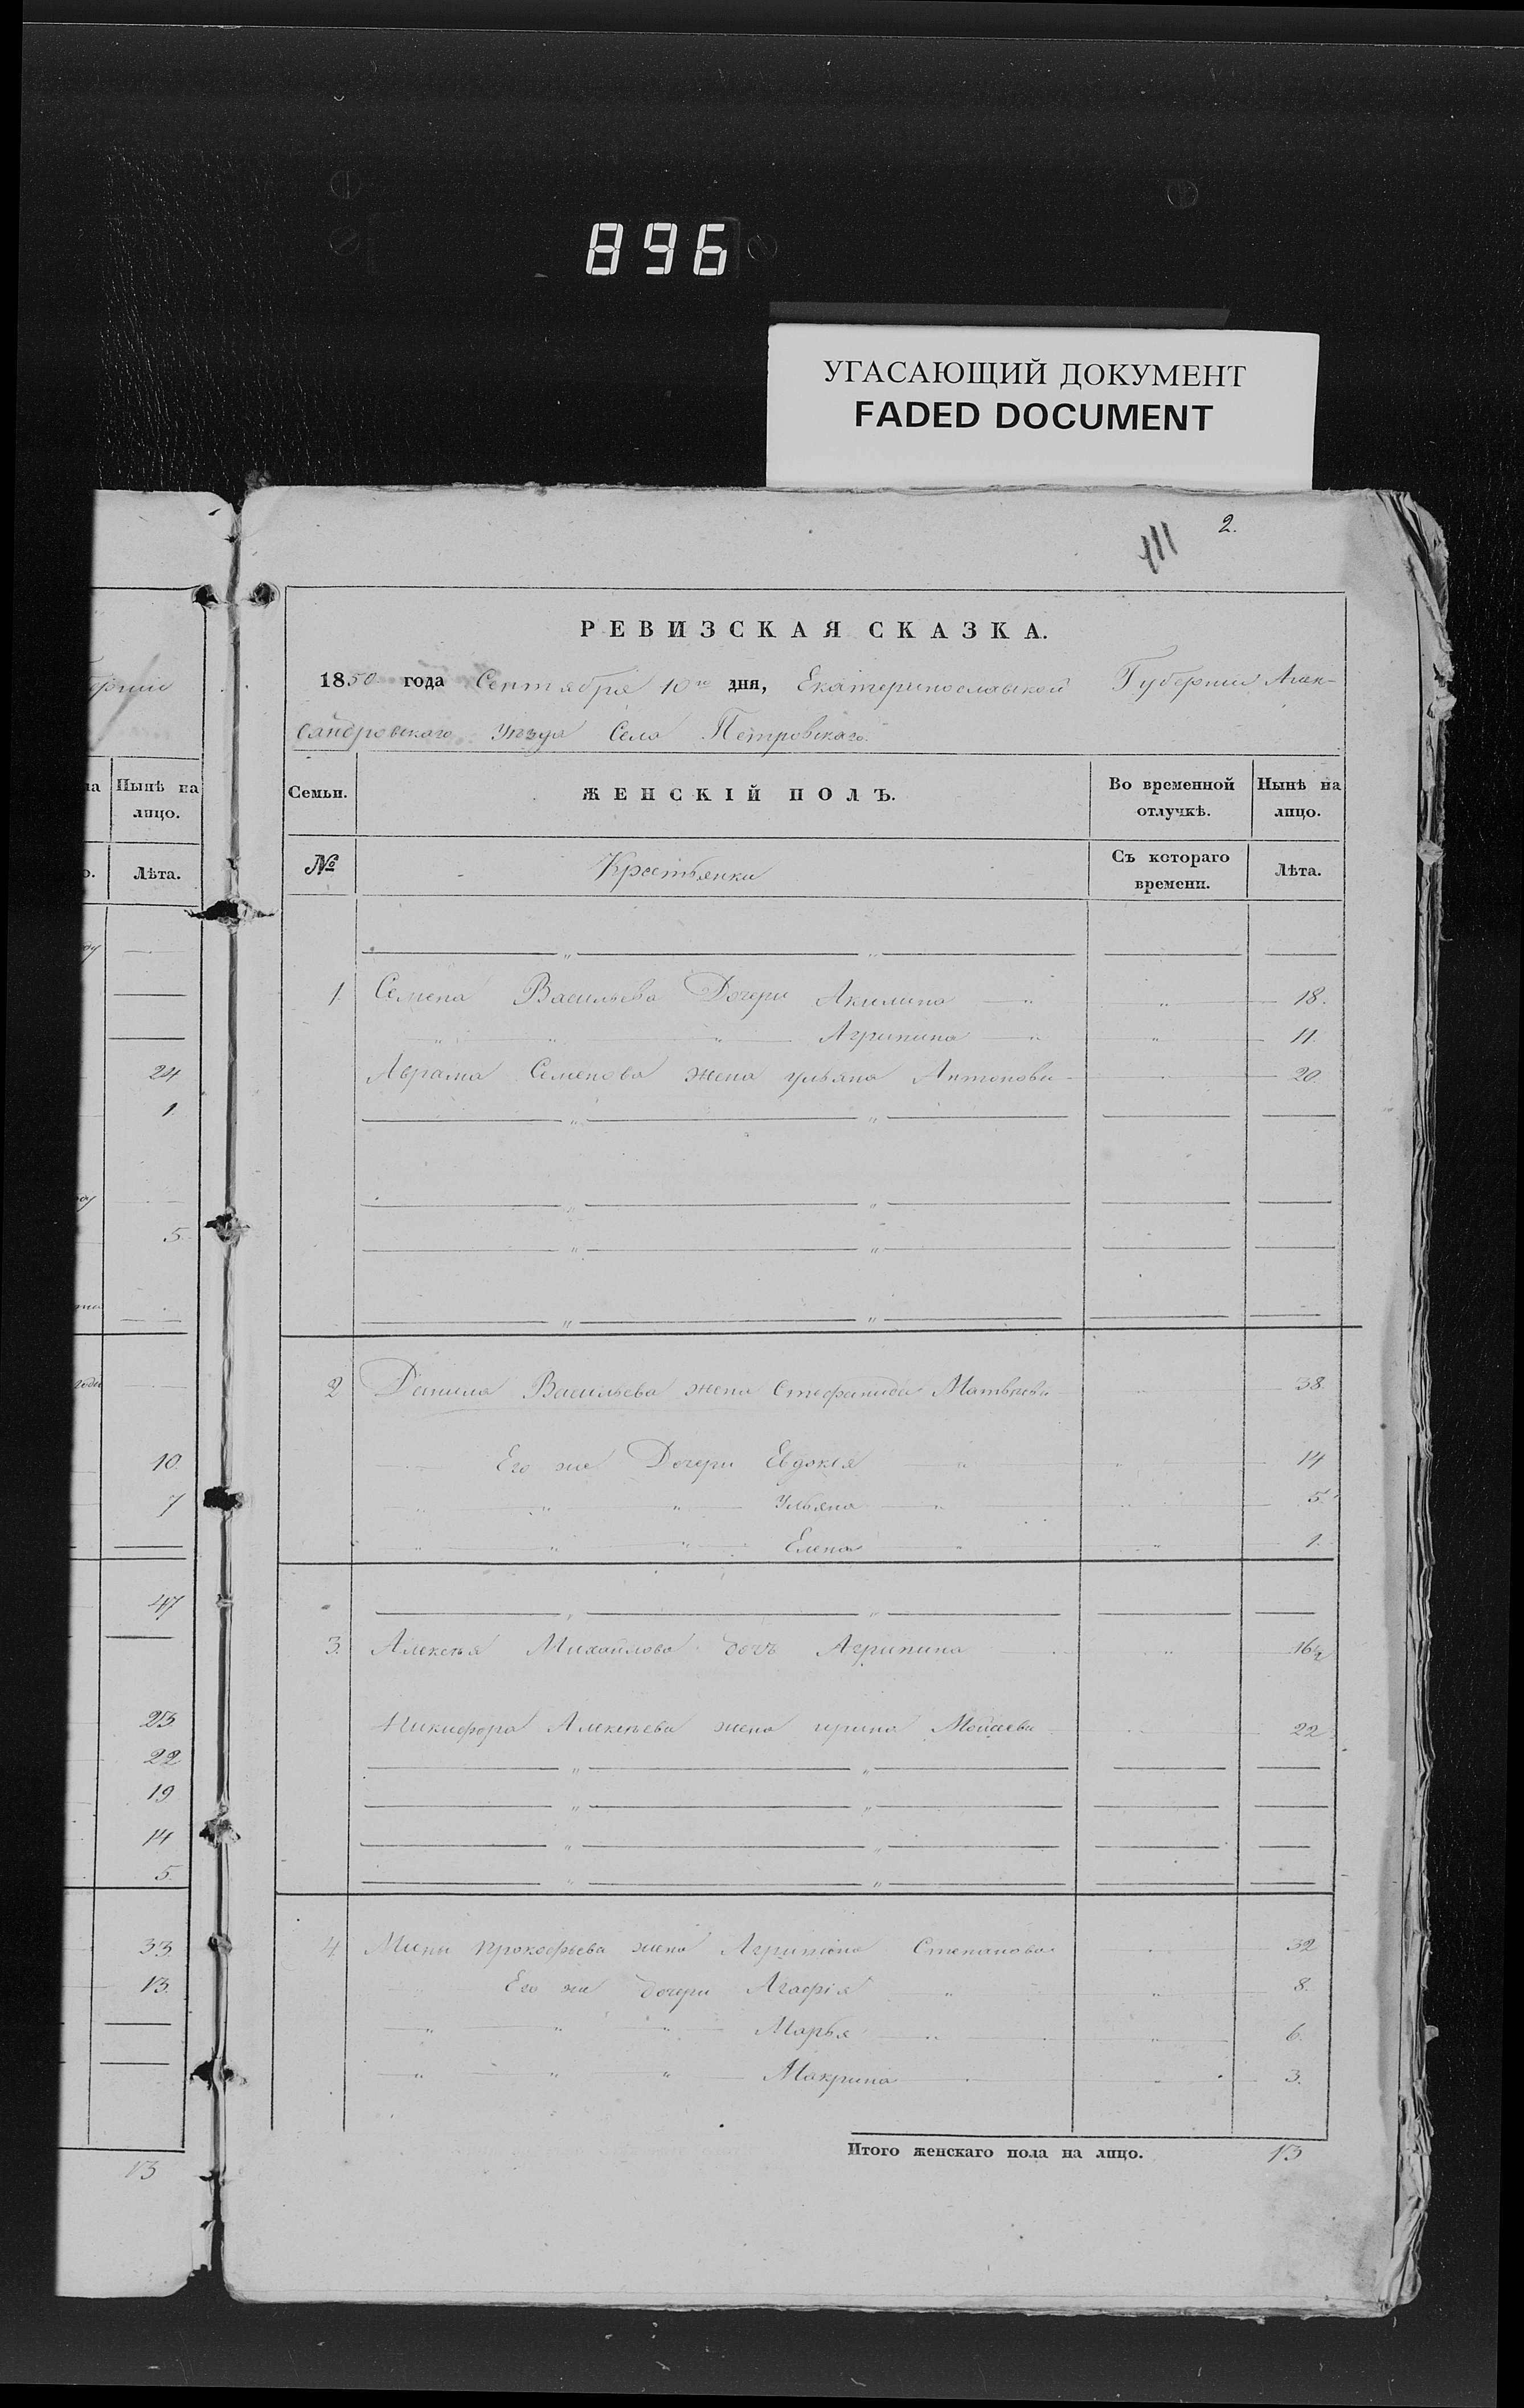 896
УГАСАЮЩИЙ ДОКУМЕНТ
FADED DOCUMENT
2.
РЕВИЗСКАЯ СКАЗКА.
1850 года Сентября 10го дня, Екатеринославской Губернии Алек-
сандровскаго Уезда Села Петровскаго
Семьи. ЖЕНСКІЙ ПОЛЪ. Во временной отлучкѣ. Нынѣ на лицо.
№ Крестьянки Съ котораго времени. Лѣта.
1. Семена Васильева Дочери Акилина 18.
Агрипина 11.
Аврама Семенова жена Ульяна Антонова 20.
2 Данила Васильева жена Стефанида Матвѣева 38.
Его же Дочери Евдокія 14
Ульяна 5.
Елена 1.
3. Алексѣя Михайлова дочь Агрипина 16½
Никифора Алексѣева жена Ирина Мойсеева 22
4 Мины Прокофьева жена Агрипина Степанова 32
Его же дочери Агафія 8.
Марья 6.
Макрина 3.
Итого женскаго пола на лицо. 13
Нынѣ на
лицо.
Лѣта.
24
1
5.
10.
7
47
23
22
19
14
5.
33
13.
13